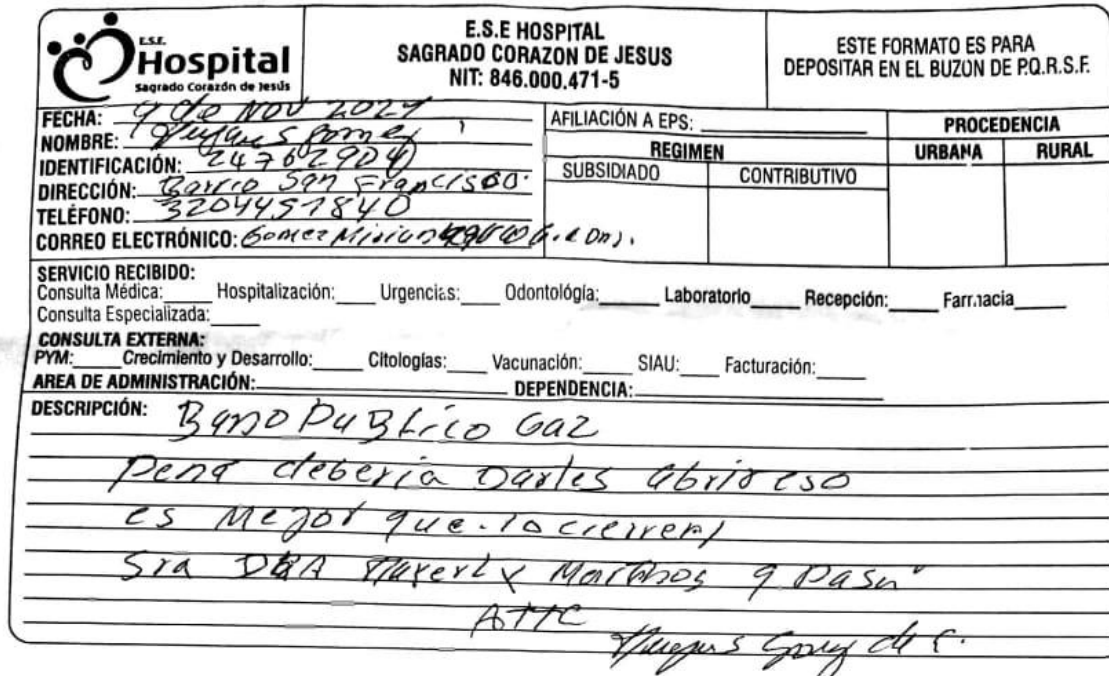 E.S.E.
Hospital
Sagrado Corazón de Jesús
E.S.E HOSPITAL
SAGRADO CORAZON DE JESUS
NIT: 846.000.471-5
ESTE FORMATO ES PARA
DEPOSITAR EN EL BUZON DE P.Q.R.S.F.
FECHA: 9 de NOV 2024
NOMBRE: Gomez
IDENTIFICACIÓN:
DIRECCIÓN: Barrio San Francisco.
TELÉFONO: 3204451840
CORREO ELECTRÓNICO:
AFILIACIÓN A EPS:
REGIMEN
SUBSIDIADO CONTRIBUTIVO
PROCEDENCIA
URBANA RURAL
SERVICIO RECIBIDO:
Consulta Médica: Hospitalización: Urgencias: Odontológia: Laboratorio Recepción: Farmacia
Consulta Especializada:
CONSULTA EXTERNA:
PYM: Crecimiento y Desarrollo: Citologías: Vacunación: SIAU: Facturación:
AREA DE ADMINISTRACIÓN: DEPENDENCIA:
DESCRIPCIÓN: Bano Publico Gaz
Pena deberia Darles abrir eso
es Mejor que lo cierren
Sra DRA q Pasa
ATTE